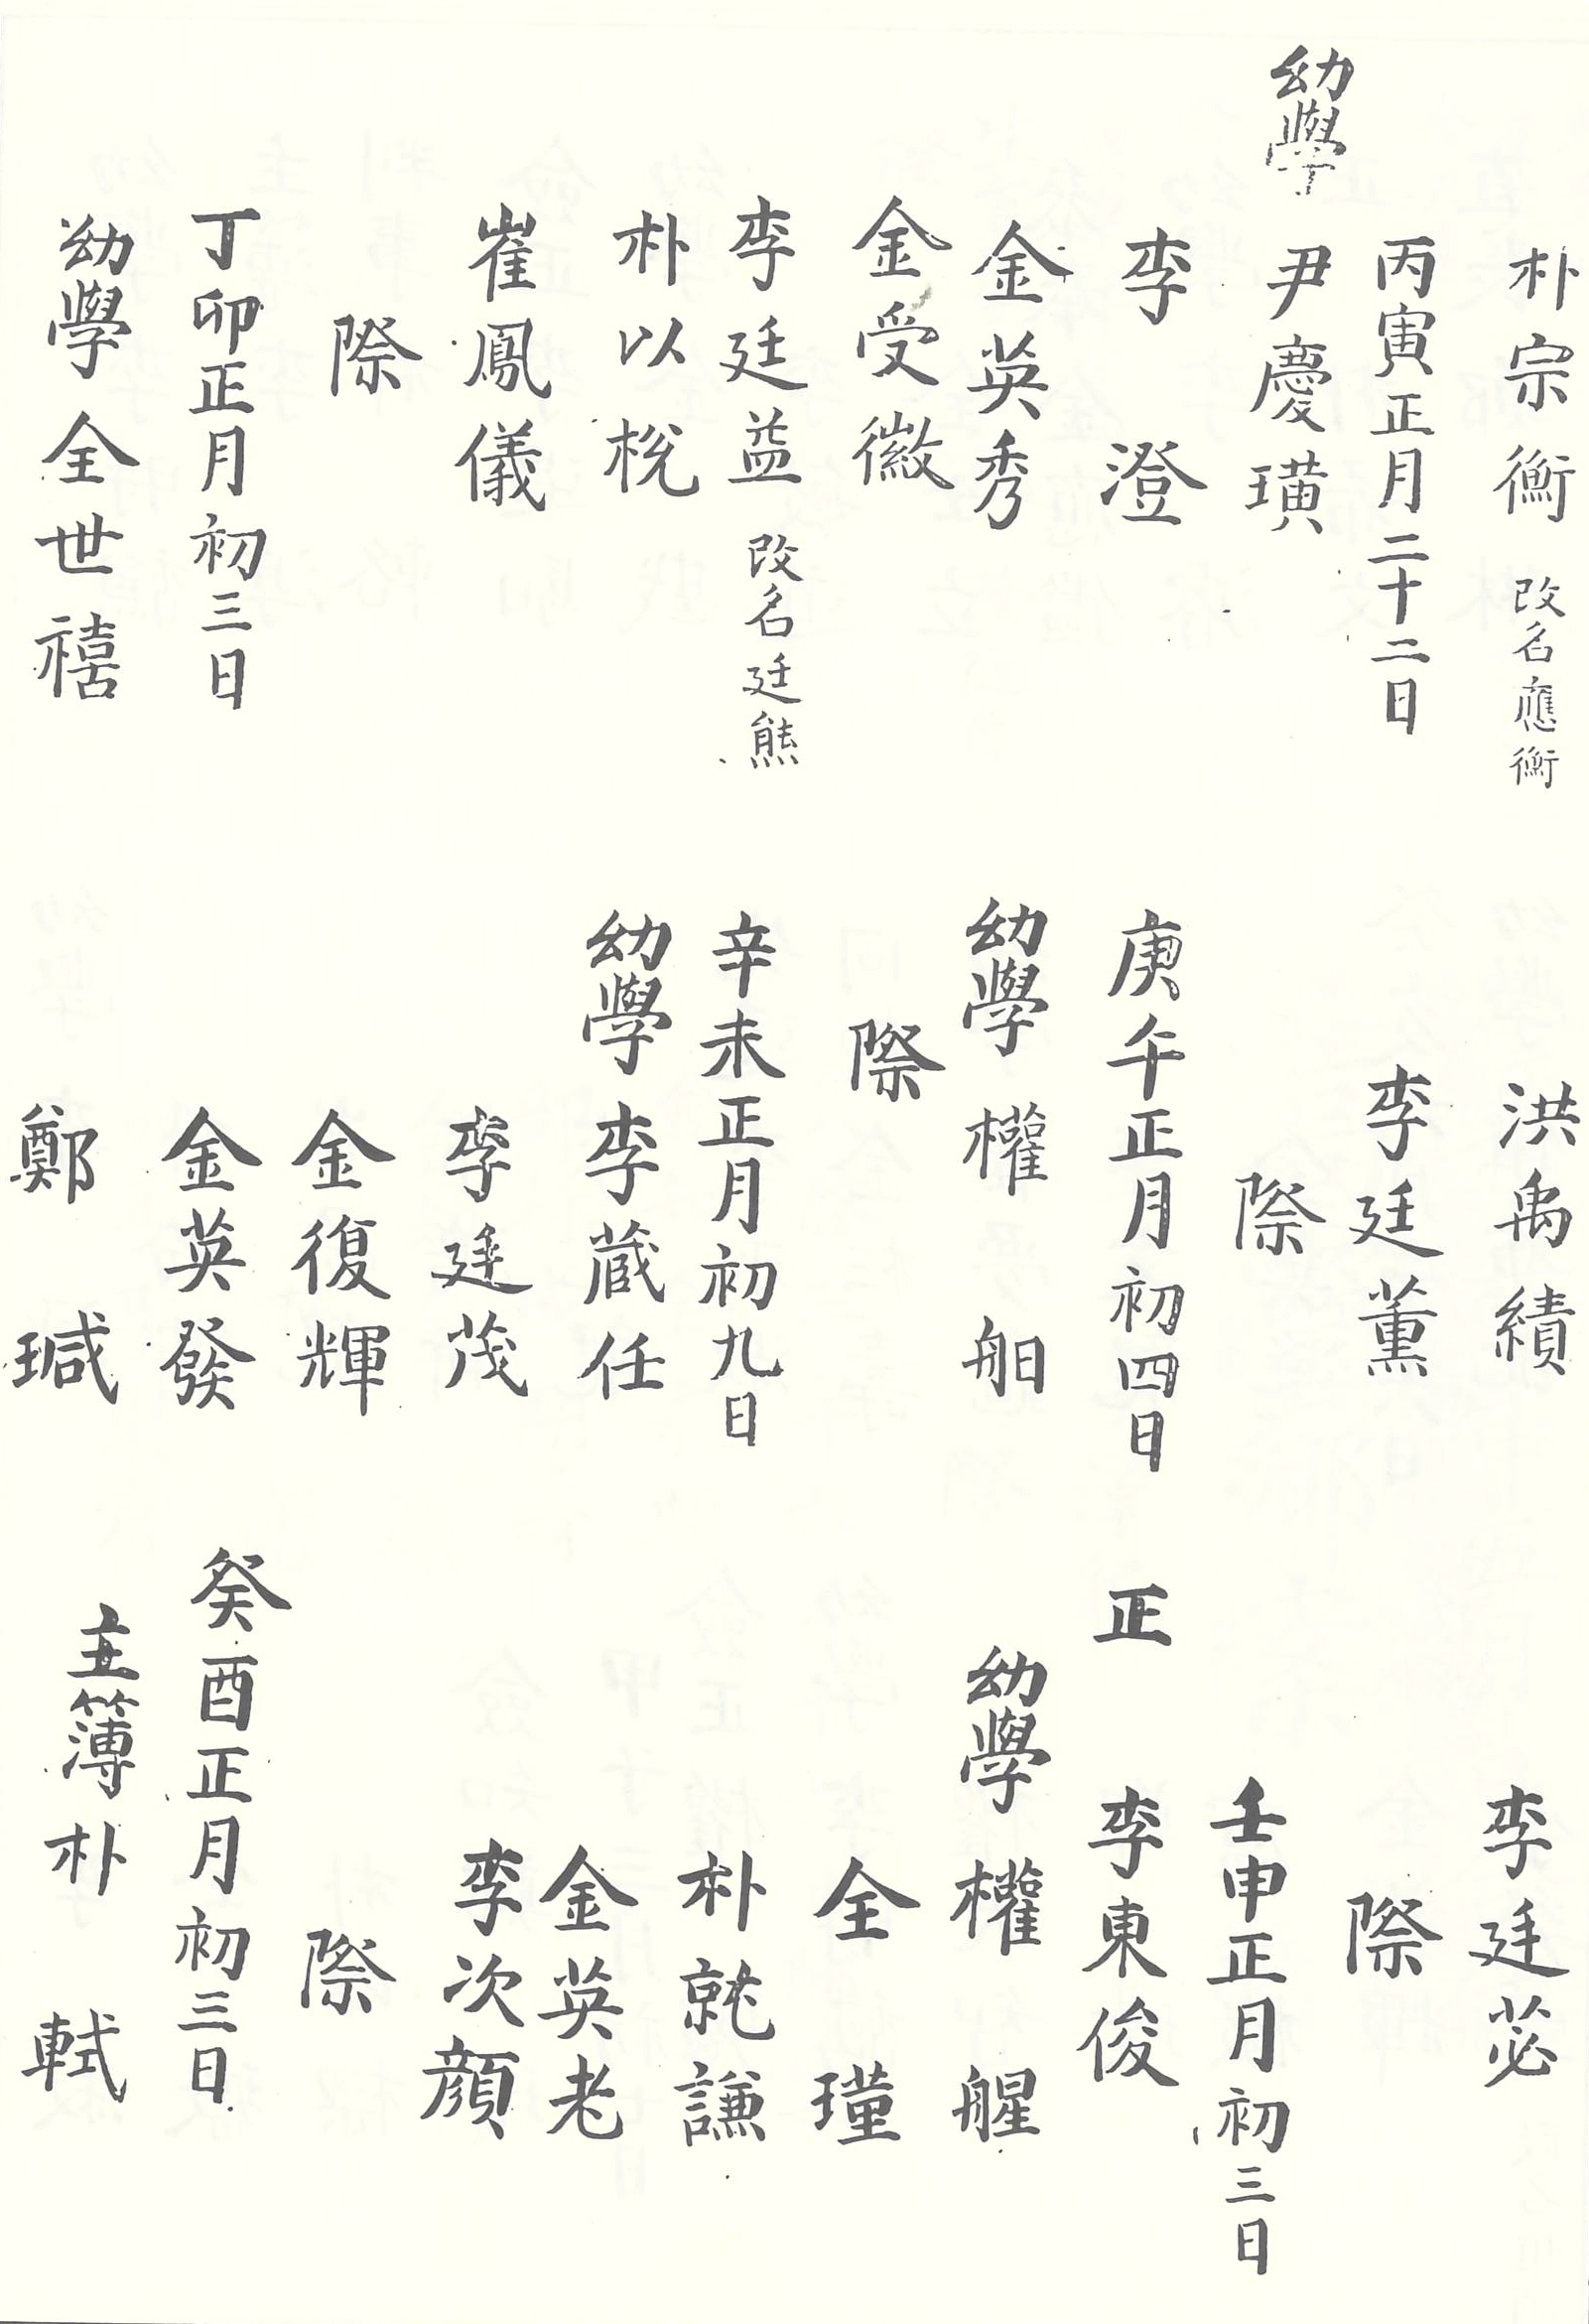 朴宗衡 改名應衡
丙寅正月二十二日
幼學 尹慶璜
李澄
金英秀
金受徽
李廷益 改名廷熊
朴以梲
崔鳳儀
際
丁卯正月初三日
幼學 全世禧
洪禹績
李廷薰
際
庚午正月初四日
幼學 權
際
辛未正月初九日
幼學 李葳任
李廷茂
金復輝
金英發
鄭瑊
李廷苾
際
壬申正月初三日
正 李東俊
幼學 權
全瑾
朴就謙
金英老
李次顔
際
癸酉正月初三日
主簿 朴軾